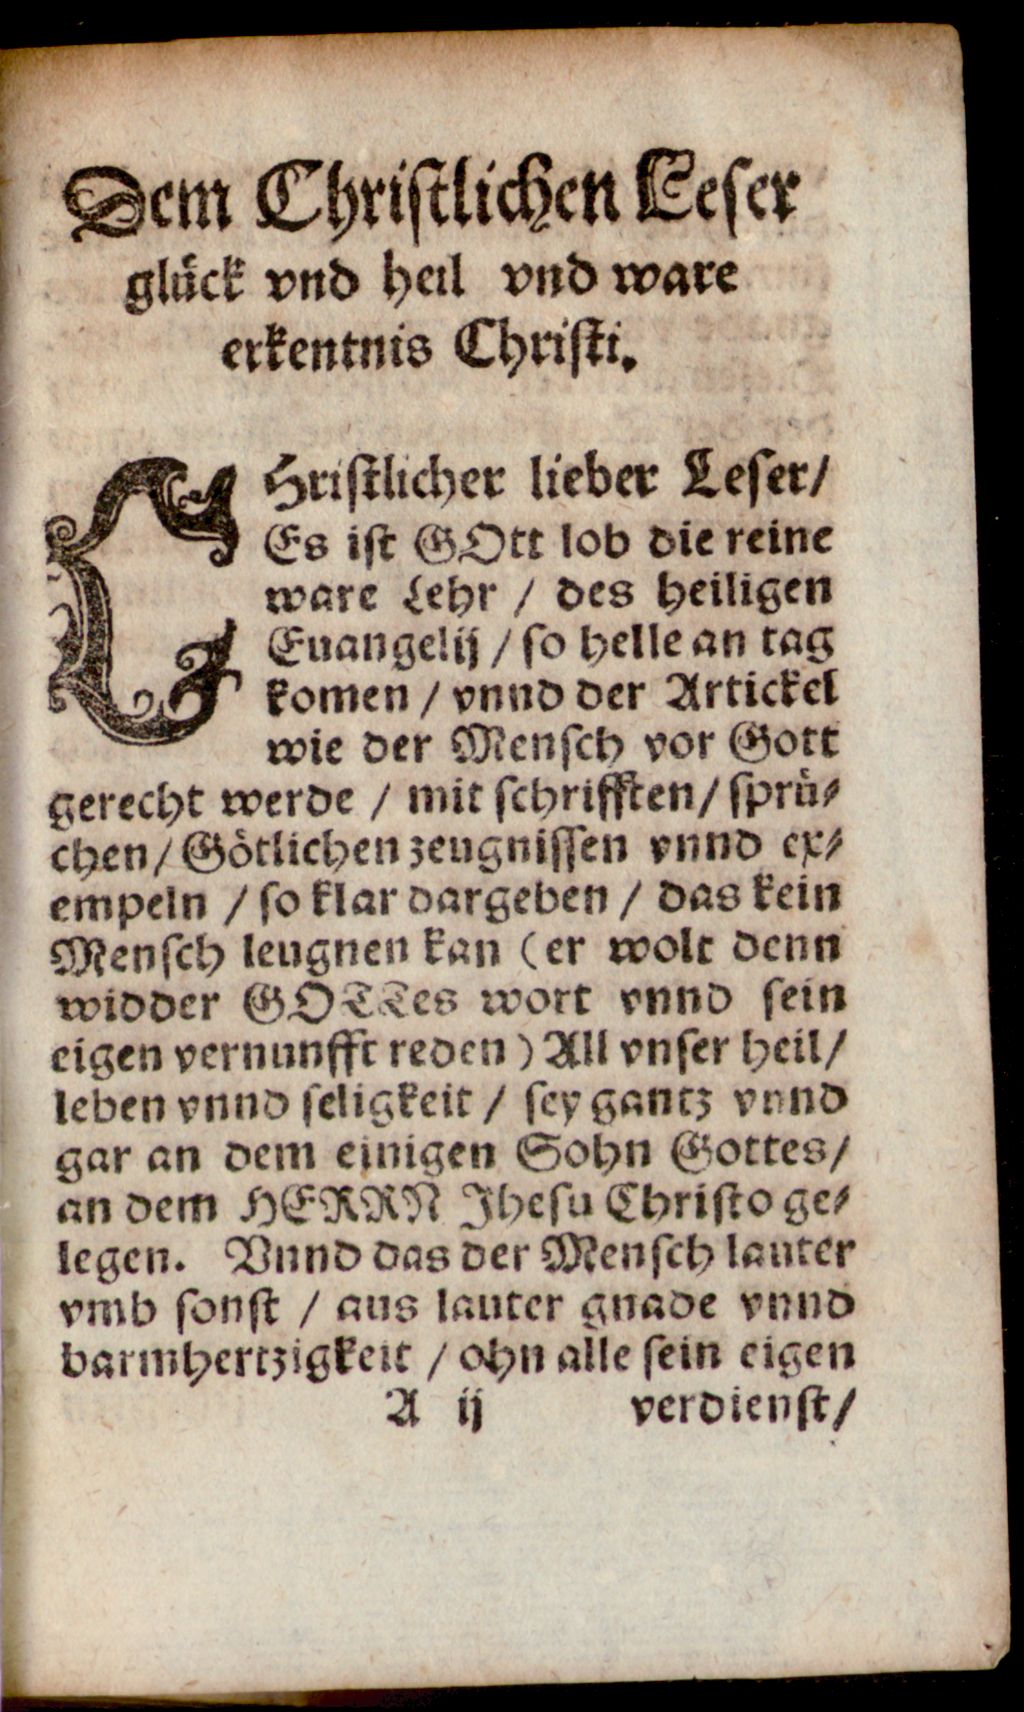 Dem Christlichen Leser
glück vnd heil vnd ware
erkentnis Christi.
CHristlicher lieber Leser/
Es ist GOtt lob die reine
ware Lehr / des heiligen
Euangelij / so helle an tag
komen / vnnd der Artickel
wie der Mensch vor Gott
gerecht werde / mit schrifften/ sprü-
chen/ Götlichen zeugnissen vnnd ex-
empeln / so klar dargeben / das kein
Mensch leugnen kan (er wolt denn
widder GOTTes wort vnnd sein
eigen vernunfft reden) All vnser heil/
leben vnnd seligkeit / sey gantz vnnd
gar an dem einigen Sohn Gottes/
an dem HERRN Jhesu Christo ge-
legen. Vnnd das der Mensch lauter
vmb sonst / aus lauter gnade vnnd
barmhertzigkeit / ohn alle sein eigen
A ij verdienst/